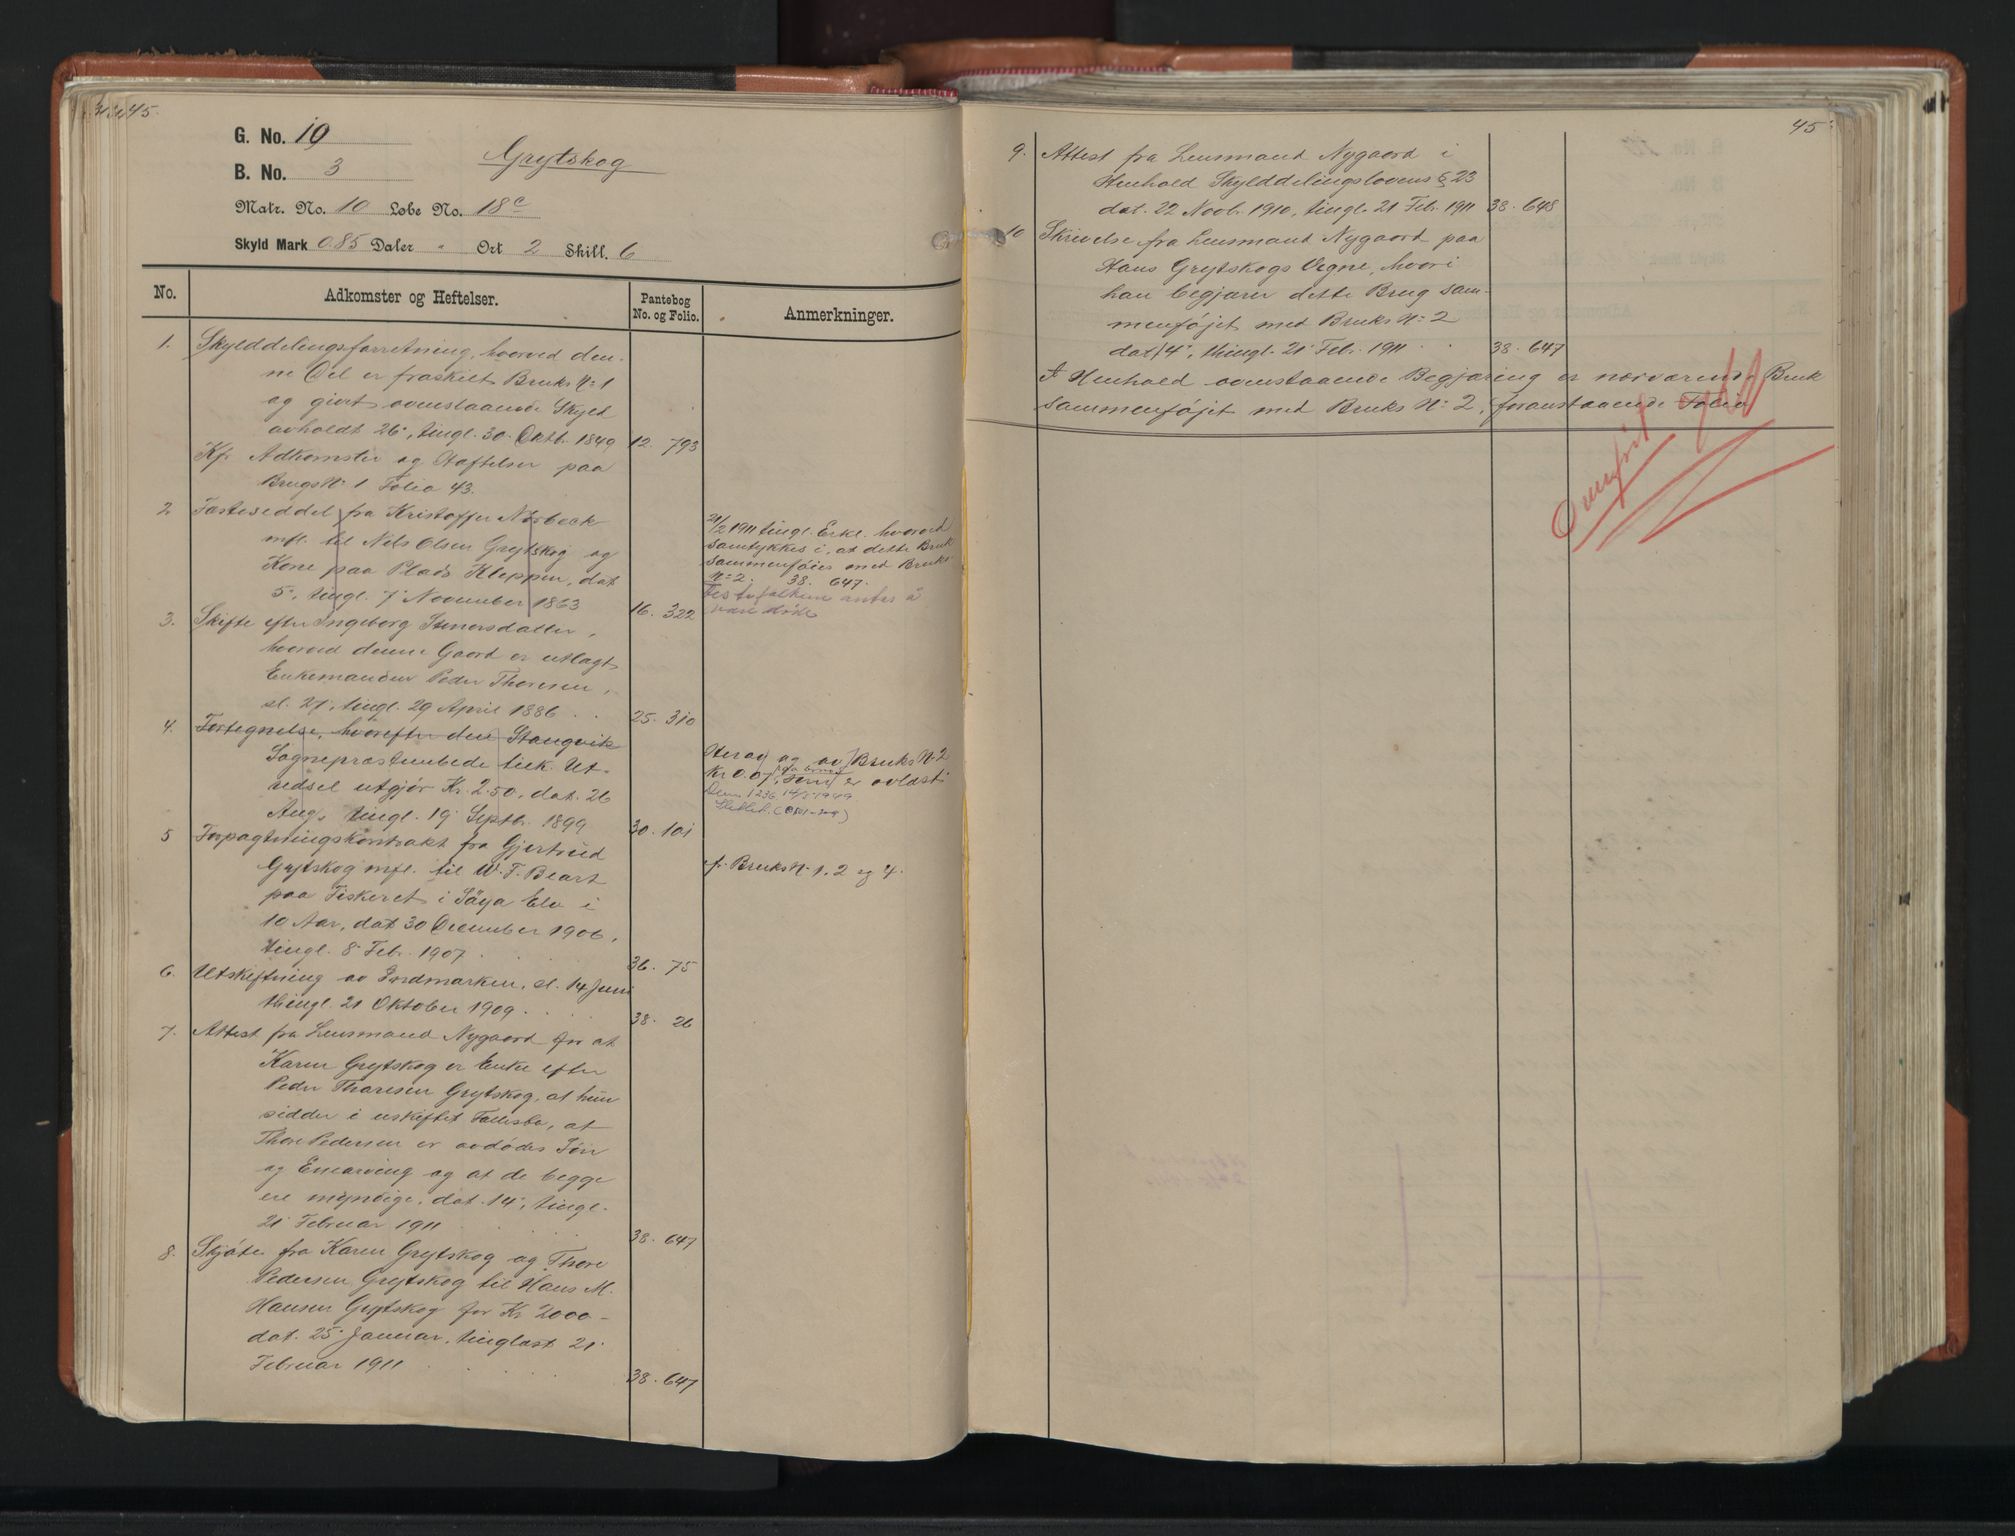 45.
G. No. 10
B. No. 3
Grytskog
Matr. No. 10 Løbe No. 18c
Skyld Mark 0.85 Daler " Ort 2 Skill. 6
No. Adkomster og Heftelser. Pantebog No. og Folio. Anmerkninger.
1. Skylddelingsforretning, hvorved den-
ne Del er fraskilt Bruks No 1
og givet ovenstaaende Skyld
avholdt 26', tingl. 30. Oktb. 1849 12. 793
Kfr. Adkomster og Heftelser paa
Brugs No 1 Folio 43.
2 Fæsteseddel fra Kristoffer Norbeck
mfl. til Nils Olsen Grytskog og
Kone paa Plads Kleppen, dat
5', tingl. 7' November 1863 16. 322
21/2 1911 tingl. Erkl. hvorved
samtykkes i, at dette Bruk
sammenføies med Bruks
No 2. 38. 647.
Festefolkene antas å
være døde
3. Skifte efter Ingeborg Stenersdatter,
hvorved denne Gaard er utlagt
Enkemanden Peder Thoresen,
sl. 27', tingl. 29 April 1886 25. 310
4. Fortegnelse, hvorefter den Stangvik
Sognepræstembede tilk. Ut-
redsel utgjør Kr. 2.50, dat. 26
Aug, tingl. 19' Septbr. 1899 30. 101
Herav og av Bruks No 2
Kr 0.07, er avløst
Dem. 1236 14/5 1949
Slettet.
5 Forpagtningskontrakt fra Gjertrud
Grytskog mfl. til W. F. Beart
paa Fiskeret i Söya Elv i
10 Aar, dat 30 December 1906,
tingl. 8' Feb. 1907 36. 75
cfr. Bruks No 1. 2 og 4.
6. Utskiftning av Indmarken, sl. 14 Juni
thingl. 21 Oktober 1909 38. 26
7. Attest fra Lensmand Nygaard for at
Karen Grytskog er Enke efter
Peder Thoresen Grytskog, at hun
sidder i uskiftet Fællesbo, at
Thore Pedersen er avdødes Søn
og Enearving og at de begge
ere myndige, dat. 14', tingl.
21' Februar 1911 38. 647
8. Skjøte fra Karen Grytskog og Thore
Pedersen Grytskog til Hans M.
Hansen Grytskog for Kr 2000 -
dat. 25' Januar, tinglæst 21'
Februar 1911 38. 647
45
9. Attest fra Lensmand Nygaard i
Henhold Skylddelingslovens § 23
dat. 22 Novb. 1910, tingl. 21 Feb. 1911 38. 648
10 Skrivelse fra Lensmand Nygaard paa
Hans Grytskogs Vegne, hvori
han begjærer dette Brug sam-
menføjet med Bruks No 2
dat 14', thingl. 21' Feb. 1911 38. 647
I Henhold ovenstaaende Begjæring er nærværende Bruk
sammenføjet med Bruks No 2, foranstaaende Folio
Overført